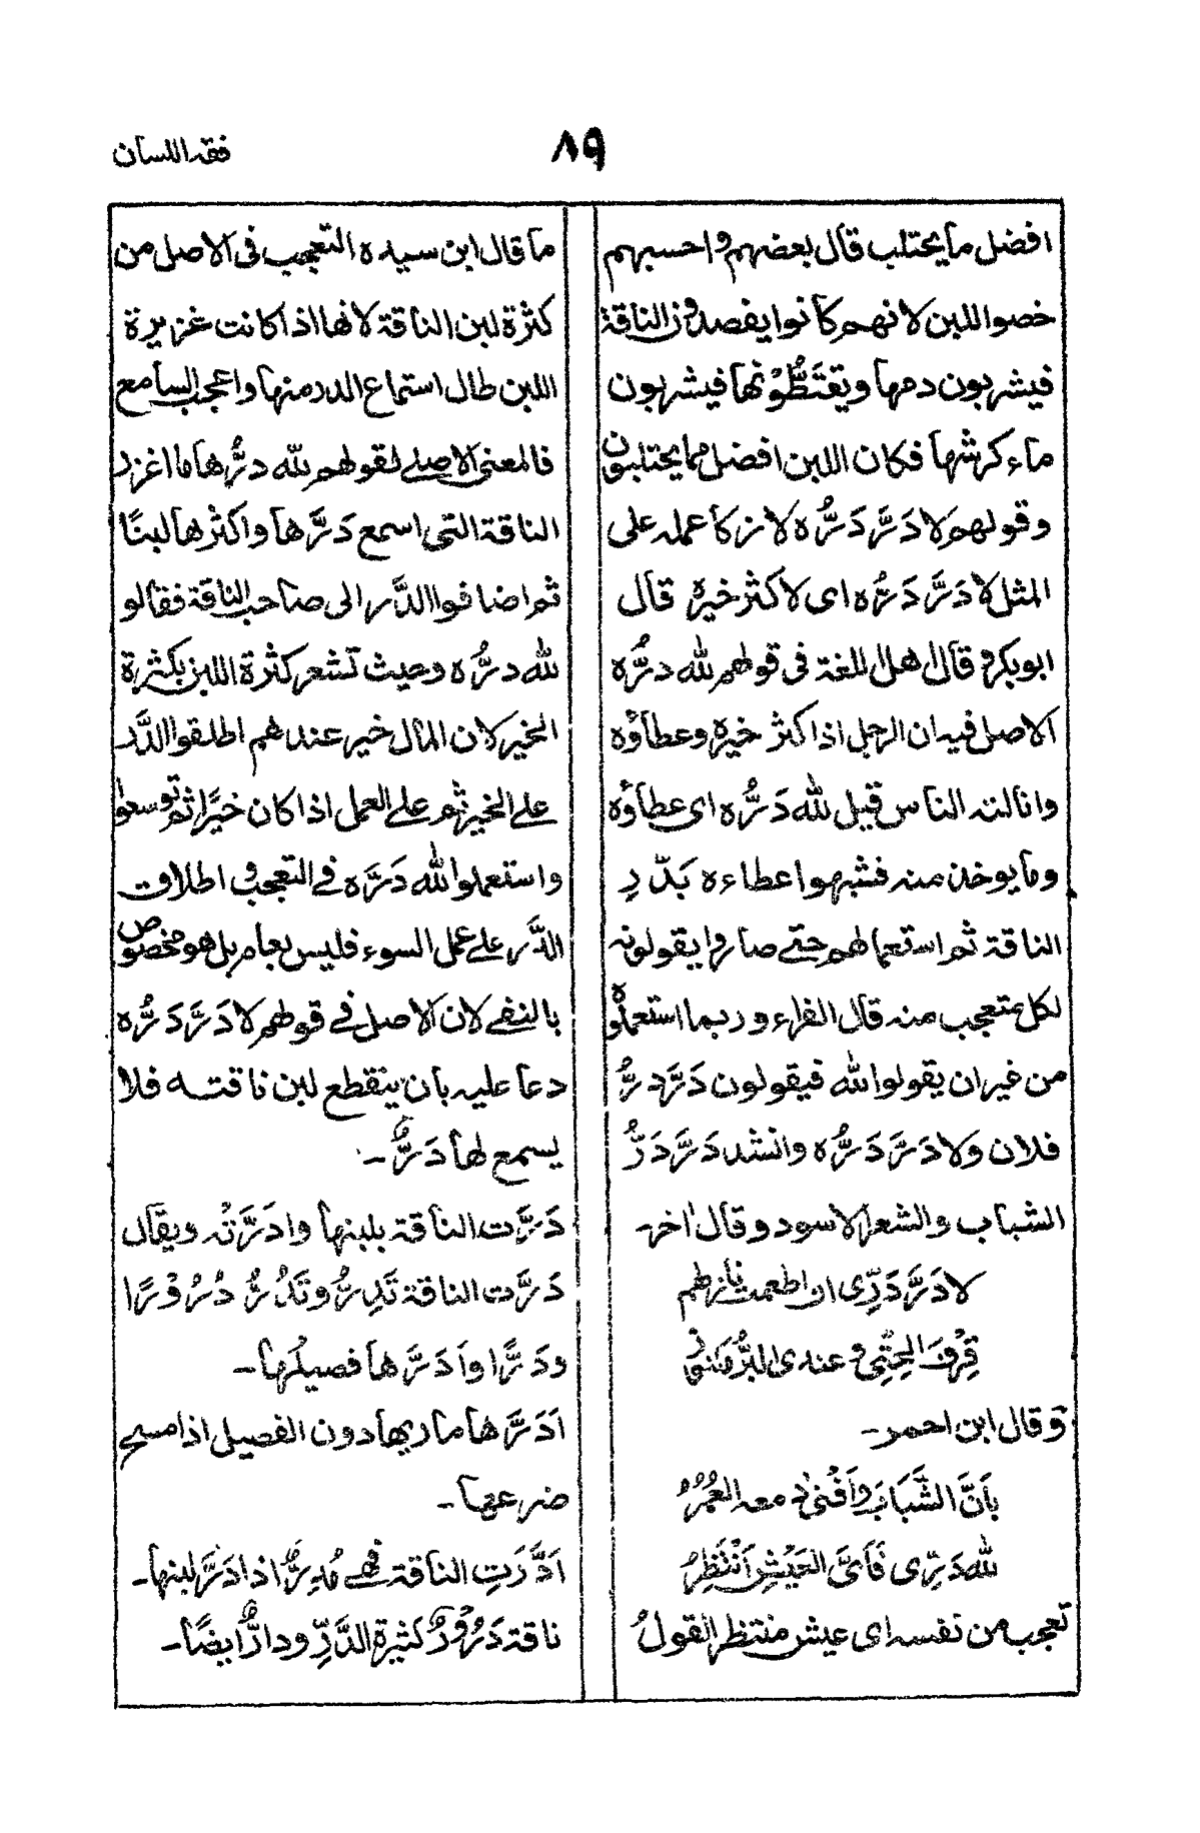 ٨٩
فقہ اللسان
افضل ما يحتلب قال بعضهم واحسبهم
خصوا اللبن لانهم كانوا يفصدون الناقة
فيشربون دمها ويقتَطُّوْنها فيشربون
ماء كرشها فكان اللبن افضل مما يحتلبون
وقولهم لا دَرَّ دَرُّه لا زكا عمله على
المثل لا دَرَّ دَرُّه اى لا كثر خيرہ قال
ابوبكر وقال اهل اللغة فى قولهم للّٰه درُّه
الاصل فيه ان الرجل اذا كثر خيرہ وعطاؤه
وانالته الناس قيل للّٰه دَرُّه اى عطاؤه
وما يوخذ منه فشبهوا عطاءه بَدّرِ
الناقة ثم استعمالهم حتے صاروا يقولونه
لكل متعجب منه قال الفراء وربما استعملوہ
من غير ان يقولوا للّٰه فيقولون دَرَّ درُّ
فلان وَلا دَرَّ دَرُّه وانشد دَرَّ دَرُّ
الشباب والشعر الاسود وقال اٰخر۔
لا دَرَّ دَرِّى ان اطعمت نازلهم
قِرْفَ الحَتِّي وعندى البُرُّ مَكنوز
وقال ابن احمر۔
بَانَ الشَّبَابُ وَاَفْنىٰ معه العُمُرُ
للّٰه دَرِّى فَاَىَّ العَيْشِ اَنْتَظِرُ
تعجب من نفسه اى عيش منتظر القولُ
ما قال ابن سيده التعجب فى الاصل من
كثرة لبن الناقة لانها اذا كانت غزيرة
اللبن طال استماع الدر منها واعجب السامع
فالمعنى الاصلے لقولهم للّٰه درُّها ما اغزر
الناقة التى اسمع دَرَّها واكثرها لبنًا
ثم اضافوا الدَّر الى صاحب الناقة فقالو
للّٰه درُّه وحيث تشعر كثرة اللبن بكثرة
الخير لان المال خير عندهم اطلقوا الدَّر
علے الخير ثم علے العمل اذا كان خيرًا ثم توسعوا
واستعملوا للّٰه دَرَّه فے التعجب واطلاق
الدَّر علے عمل السوء فليس بعام بل هو مخصوص
بالنفے لان الاصل فے قولهم لا دَرَّ دَرُّه
دعا عليه بان ينقطع لبن ناقته فلا
يسمع لها دَرٌّ۔
دَرَّت الناقة بلبنها وادَرَّتْه ويقال
دَرَّت الناقة تَدِرُّ وتَدُرُّ دُرُوْرًا
ودَرًّا واَدَرَّها فصيلُها۔
اَدَرَّها ماريها دون الفصيل اذا مسح
ضرعها۔
اَدَّرَتِ الناقة فهے مُدِرٌّ اذا ادَرَّ لبنها۔
ناقة دَرُوْرٌ كثيرة الدَّرِّ ودارٌّ ايضًا۔